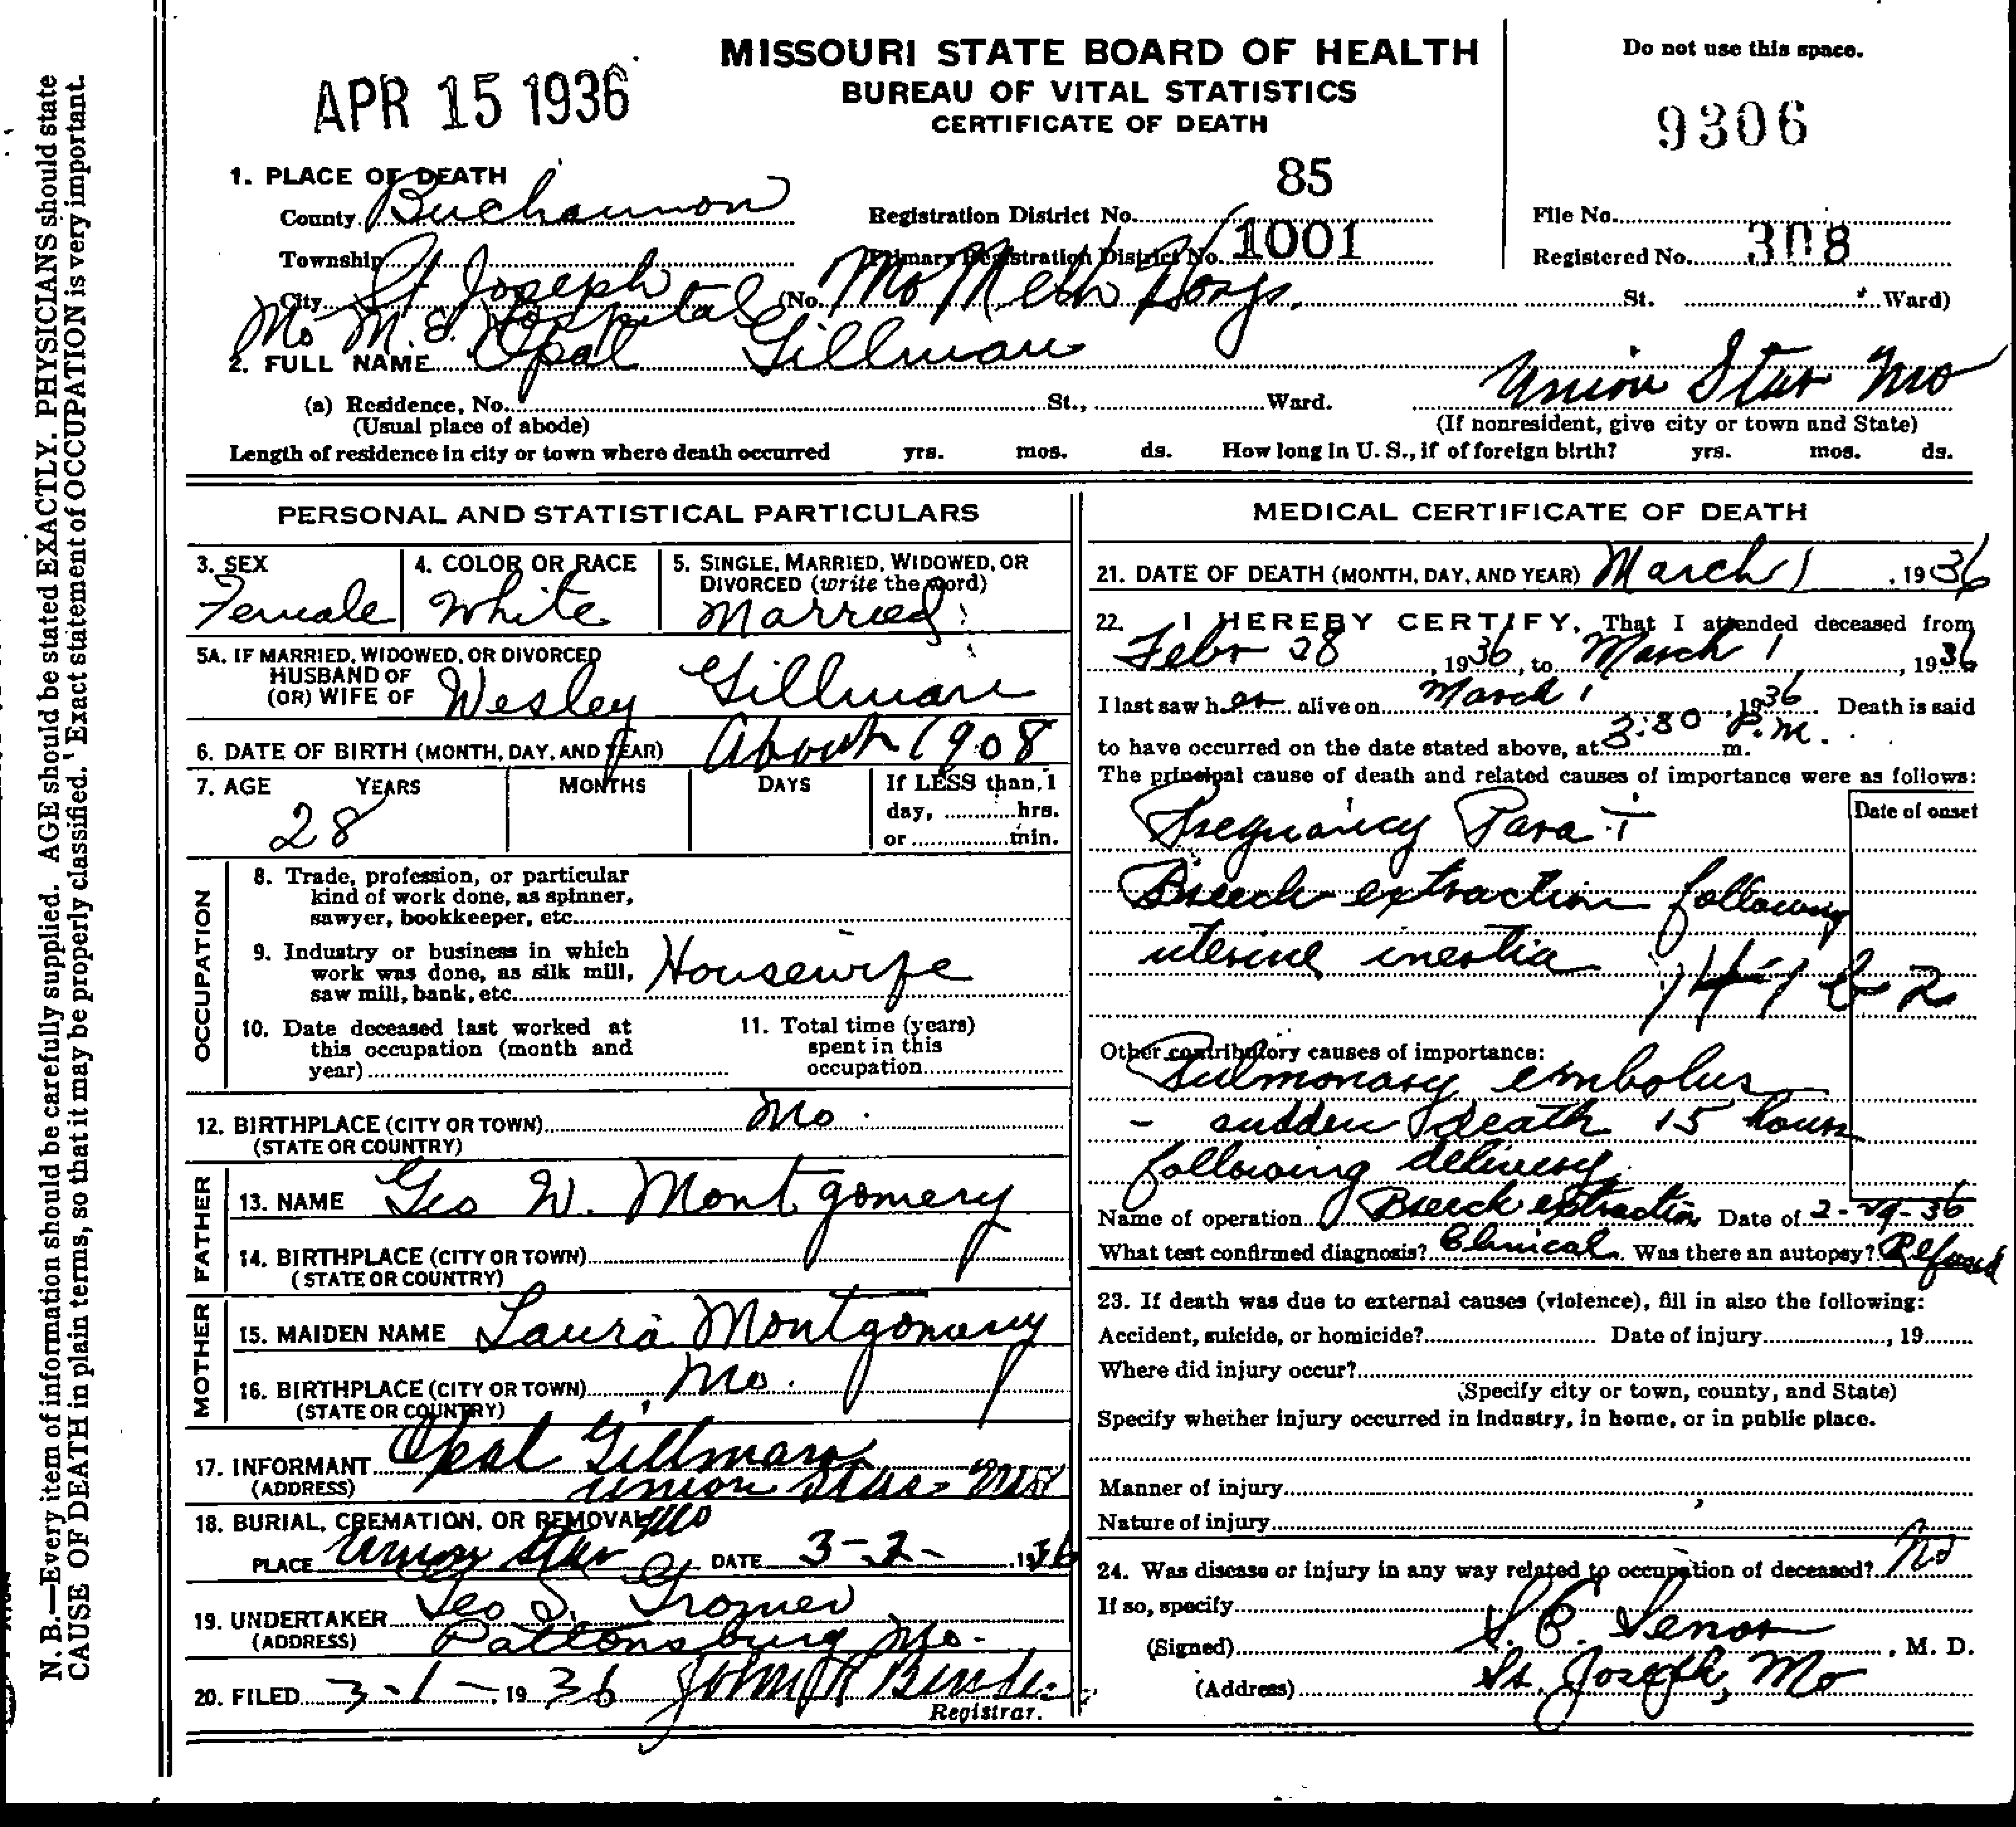 MISSOURI STATE BOARD OF HEALTH
BUREAU OF VITAL STATISTICS
CERTIFICATE OF DEATH
APR 15 1936
Do not use this space.
9306
1. PLACE OF DEATH
County Buchannon
Registration District No. 85
File No.
Township
Primary Registration District No. 1001
Registered No. 308
City St Joseph (No. Mo Meth Hosp. St. Ward)
Mo M.E. Hospital
2. FULL NAME Opal Gillman
(a) Residence, No. St., Ward. Union Star Mo
(Usual place of abode) (If nonresident, give city or town and State)
Length of residence in city or town where death occurred yrs. mos. ds. How long in U. S., if of foreign birth? yrs. mos. ds.
PERSONAL AND STATISTICAL PARTICULARS
3. SEX
Female
4. COLOR OR RACE
White
5. SINGLE, MARRIED, WIDOWED, OR
DIVORCED (write the word)
Married
5A. IF MARRIED, WIDOWED, OR DIVORCED
HUSBAND OF
(OR) WIFE OF Wesley Gillman
6. DATE OF BIRTH (MONTH, DAY, AND YEAR) About 1908
7. AGE YEARS MONTHS DAYS If LESS than 1
day, hrs.
or min.
28
OCCUPATION
8. Trade, profession, or particular
kind of work done, as spinner,
sawyer, bookkeeper, etc.
9. Industry or business in which
work was done, as silk mill,
saw mill, bank, etc. Housewife
10. Date deceased last worked at
this occupation (month and
year)
11. Total time (years)
spent in this
occupation
12. BIRTHPLACE (CITY OR TOWN) Mo
(STATE OR COUNTRY)
FATHER
13. NAME Geo W. Montgomery
14. BIRTHPLACE (CITY OR TOWN)
(STATE OR COUNTRY)
MOTHER
15. MAIDEN NAME Laura Montgomery
16. BIRTHPLACE (CITY OR TOWN) Mo.
(STATE OR COUNTRY)
17. INFORMANT Opal Gillman
(ADDRESS) Union Star Mo
18. BURIAL, CREMATION, OR REMOVAL Mo
PLACE Union Star DATE 3-2- 1936
19. UNDERTAKER Geo S.
(ADDRESS) Pattonsburg Mo.
20. FILED 3-1-, 1936 John R
Registrar.
MEDICAL CERTIFICATE OF DEATH
21. DATE OF DEATH (MONTH, DAY, AND YEAR) March 1, 1936
22. I HEREBY CERTIFY, That I attended deceased from
Febr 28, 1936, to March 1, 1936
I last saw her alive on March 1, 1936 Death is said
to have occurred on the date stated above, at 3:30 P.m. m.
The principal cause of death and related causes of importance were as follows:
Date of onset
Pregnancy Para I
Breech extraction following
uterine inertia
Other contributory causes of importance:
Pulmonary embolus
- sudden death 15 hours
following delivery
Name of operation Breech extraction Date of 2-29-36
What test confirmed diagnosis? Clinical Was there an autopsy? Refused
23. If death was due to external causes (violence), fill in also the following:
Accident, suicide, or homicide? Date of injury, 19
Where did injury occur?
(Specify city or town, county, and State)
Specify whether injury occurred in industry, in home, or in public place.
Manner of injury
Nature of injury
24. Was disease or injury in any way related to occupation of deceased? No
If so, specify
(Signed) S.E. Senor, M. D.
(Address) St. Joseph, Mo
N. B.—Every item of information should be carefully supplied. AGE should be stated EXACTLY. PHYSICIANS should state
CAUSE OF DEATH in plain terms, so that it may be properly classified. Exact statement of OCCUPATION is very important.